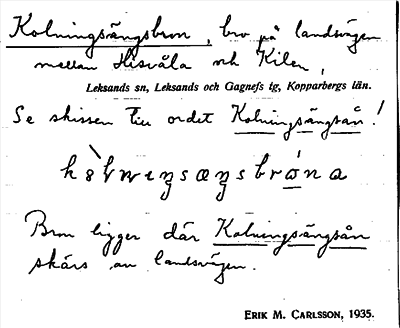 Kolningsängsbron, bro på landsvägen
mellan Hisvåla och Kilen,
Leksands sn, Leksands och Gagnefs tg, Kopparbergs län.
Se skissen till ordet Kolningsängsån!
Bron ligger där Kolningsängsån
skärs av landsvägen.
ERIK M. CARLSSON, 1935.